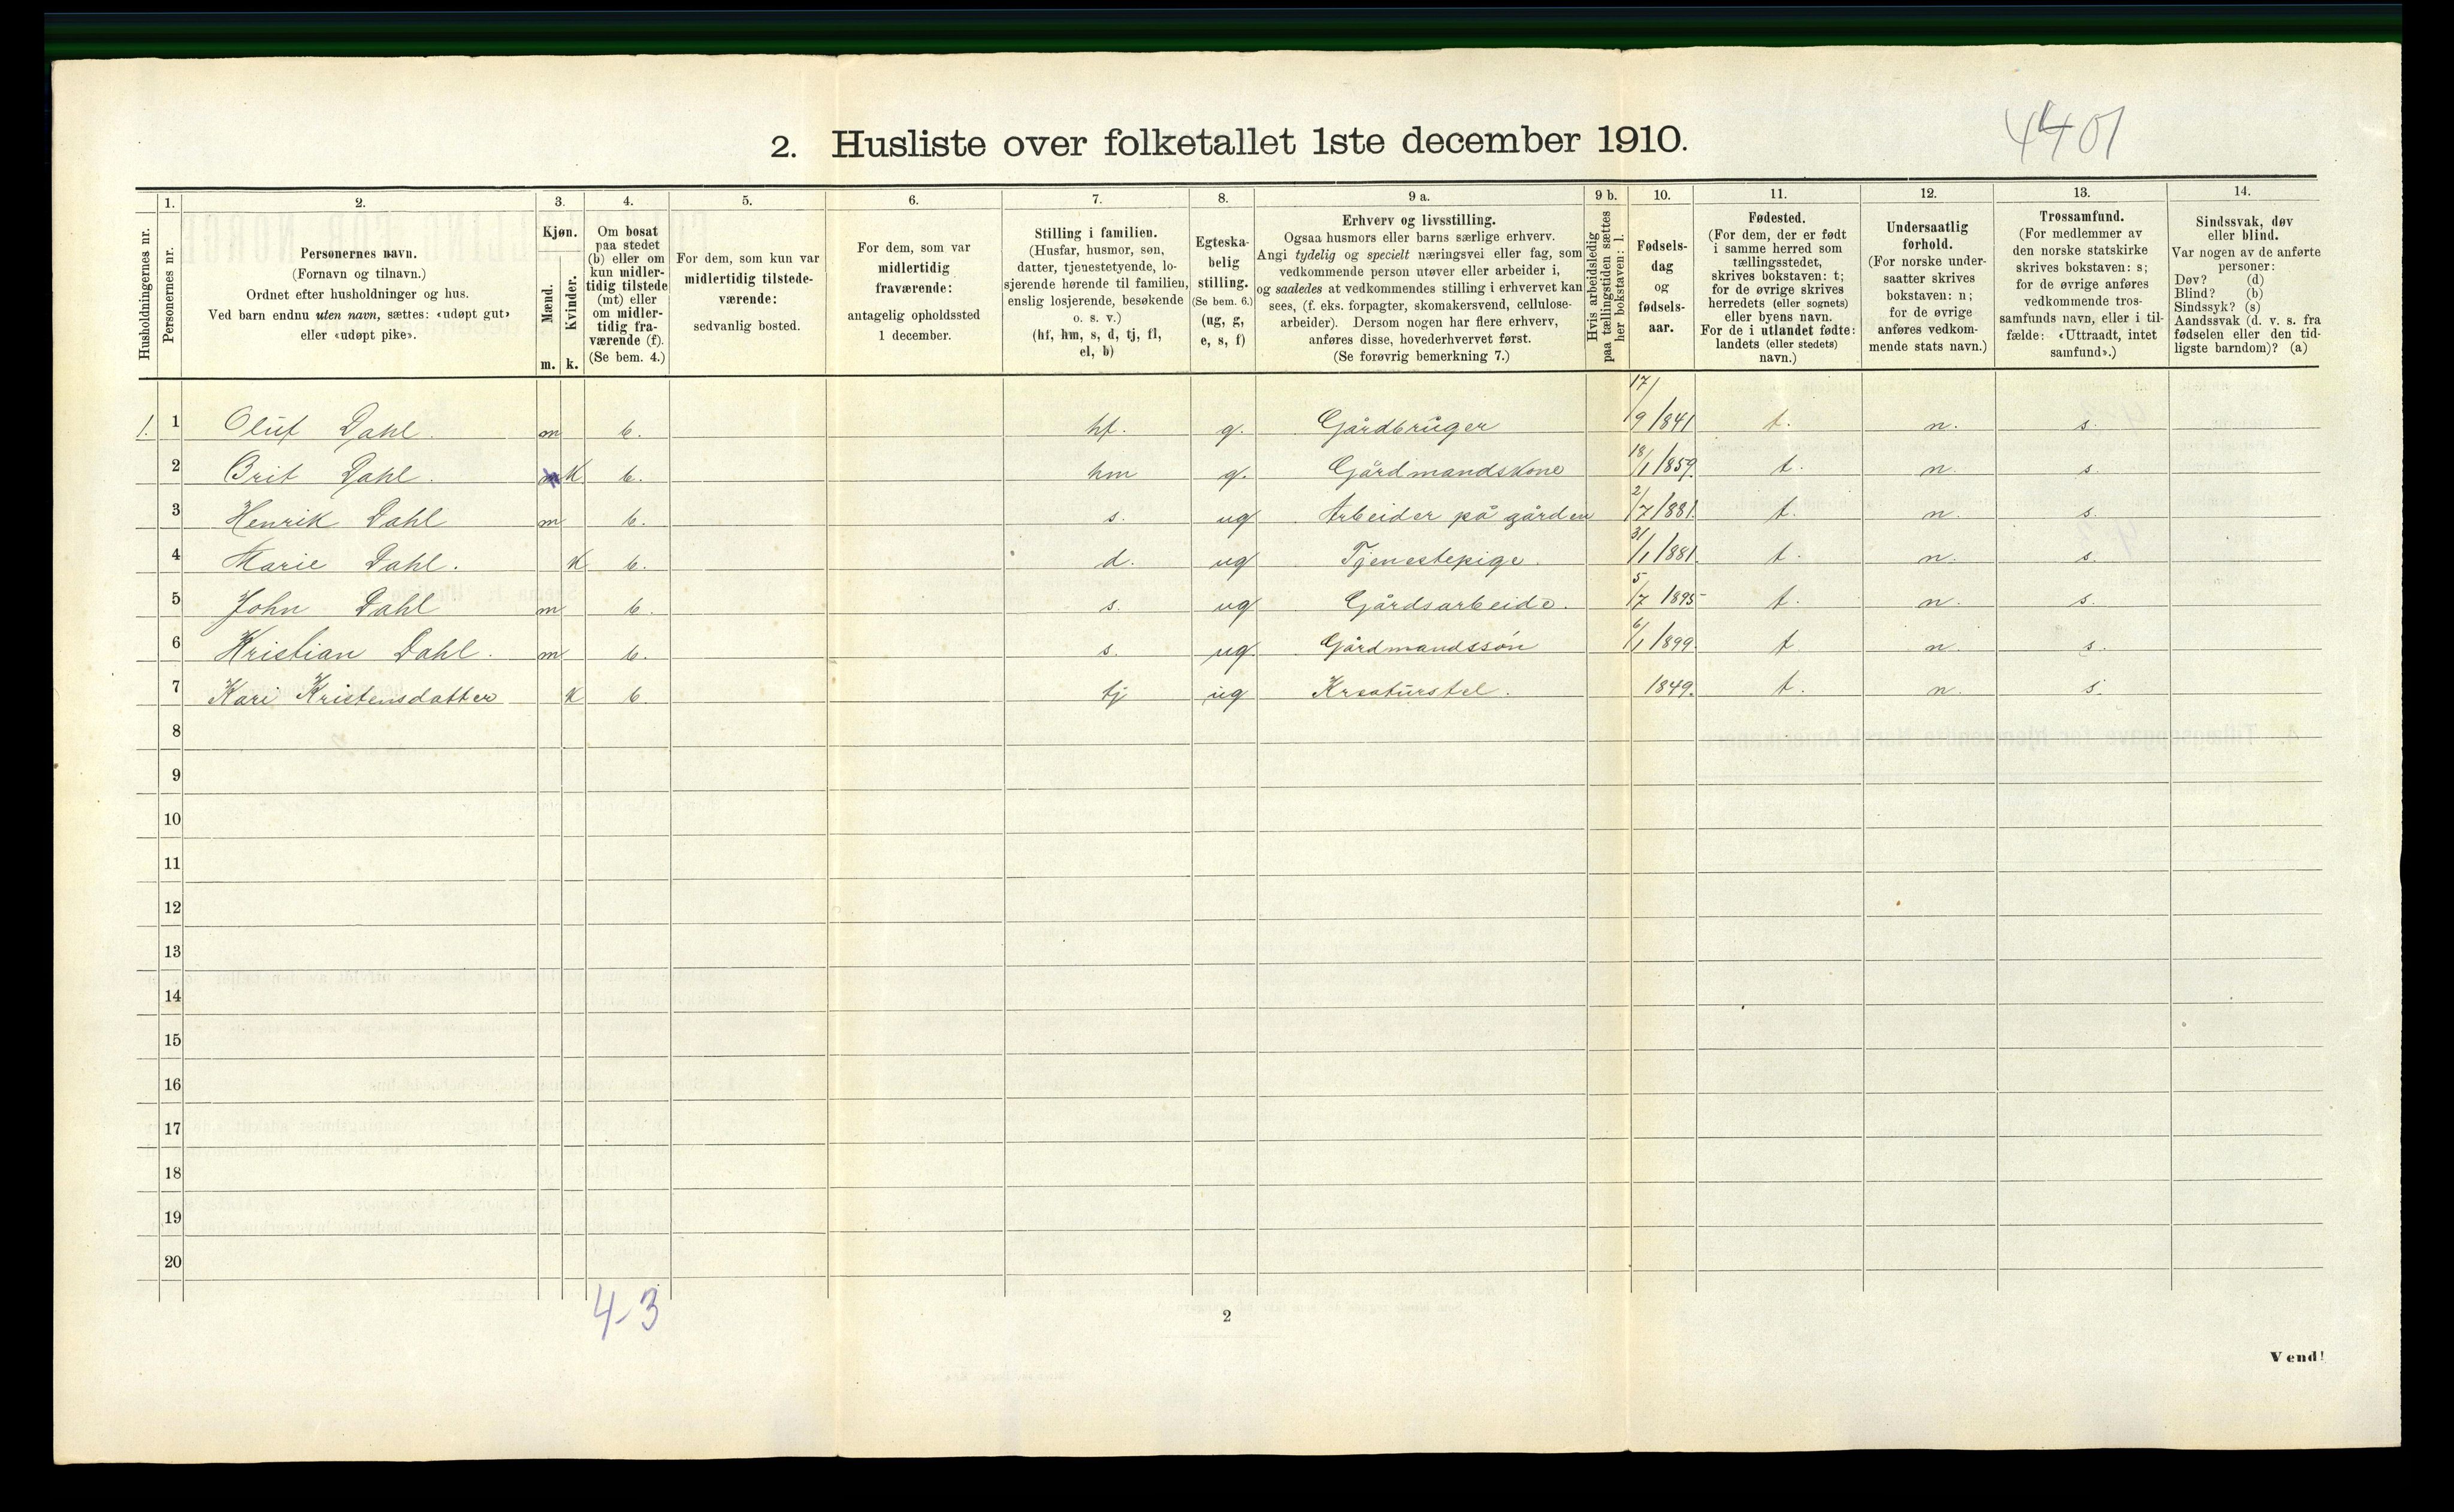 4401
2. Husliste over folketallet 1ste december 1910.
Husholdningernes nr.
1.
Personernes nr.
2.
Personernes navn.
(Fornavn og tilnavn.)
Ordnet efter husholdninger og hus.
Ved barn endnu uten navn, sættes: «udøpt gut»
eller «udøpt pike».
3.
Kjøn.
Mænd.
Kvinder.
m. k.
4.
Om bosat
paa stedet
(b) eller om
kun midler-
tidig tilstede
(mt) eller
om midler-
tidig fra-
værende (f).
(Se bem. 4.)
5.
For dem, som kun var
midlertidig tilstede-
værende:
sedvanlig bosted.
6.
For dem, som var
midlertidig
fraværende:
antagelig opholdssted
1 december.
7.
Stilling i familien.
(Husfar, husmor, søn,
datter, tjenestetyende, lo-
sjerende hørende til familien,
enslig losjerende, besøkende
o. s. v.)
(hf, hm, s, d, tj, fl,
el, b)
8.
Egteska-
belig
stilling.
(Se bem. 6.)
(ug, g,
e, s, f)
9 a.
Erhverv og livsstilling.
Ogsaa husmors eller barns særlige erhverv.
Angi tydelig og specielt næringsvei eller fag, som
vedkommende person utøver eller arbeider i,
og saaledes at vedkommendes stilling i erhvervet kan
sees, (f. eks. forpagter, skomakersvend, cellulose-
arbeider). Dersom nogen har flere erhverv,
anføres disse, hovederhvervet først.
(Se forøvrig bemerkning 7.)
9 b.
Hvis arbeidsledig
paa tællingstiden sættes
her bokstaven: l.
10.
Fødsels-
dag
og
fødsels-
aar.
11.
Fødested.
(For dem, der er født
i samme herred som
tællingsstedet,
skrives bokstaven: t;
for de øvrige skrives
herredets (eller sognets)
eller byens navn.
For de i utlandet fødte:
landets (eller stedets)
navn.)
12.
Undersaatlig
forhold.
(For norske under-
saatter skrives
bokstaven: n;
for de øvrige
anføres vedkom-
mende stats navn.)
13.
Trossamfund.
(For medlemmer av
den norske statskirke
skrives bokstaven: s;
for de øvrige anføres
vedkommende tros-
samfunds navn, eller i til-
fælde: «Uttraadt, intet
samfund».)
14.
Sindssvak, døv
eller blind.
Var nogen av de anførte
personer:
Døv? (d)
Blind? (b)
Sindssyk? (s)
Aandssvak (d. v. s. fra
fødselen eller den tid-
ligste barndom)? (a)
1. 1 Oluf Dahl. m b. hf. g. Gårdbruger 17/9 1841 t. n. s.
2 Brit Dahl. k b. hm g. Gårdmandskone 18/1 1859. t. n. s.
3 Henrik Dahl m b. s. ug Arbeider på gården 2/7 1881. t. n. s.
4 Marie Dahl. k b. d. ug Tjenestepige. 31/1 1881. t. n. s.
5 John Dahl m b. s. ug Gårdsarbeide. 5/7 1895 t. n. s.
6 Kristian Dahl. m b. s. ug. Gårdmandssøn 6/1 1899. t n. s.
7 Kari Kristensdatter k b. tj ug Kreaturstel. 1849. t. n. s.
8
9
10
11
12
13
14
15
16
17
18
19
20
4-3
2
Vend!